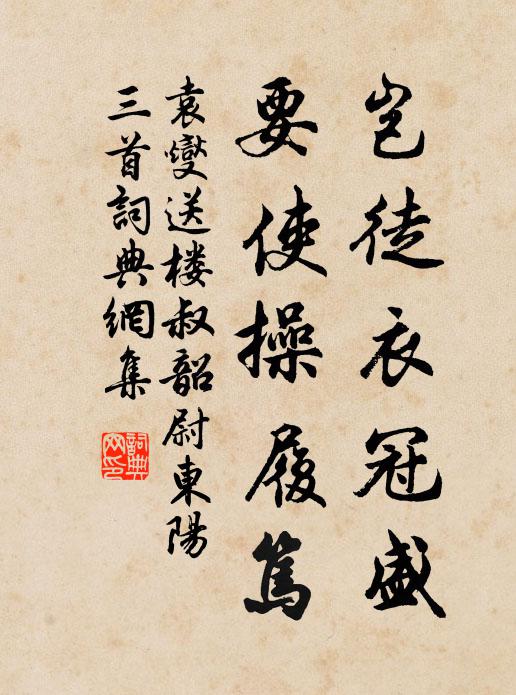 豈徒衣冠盛
要使操履篤
袁燮送楼叔韶尉東陽
三首詞典網集
詞典网印